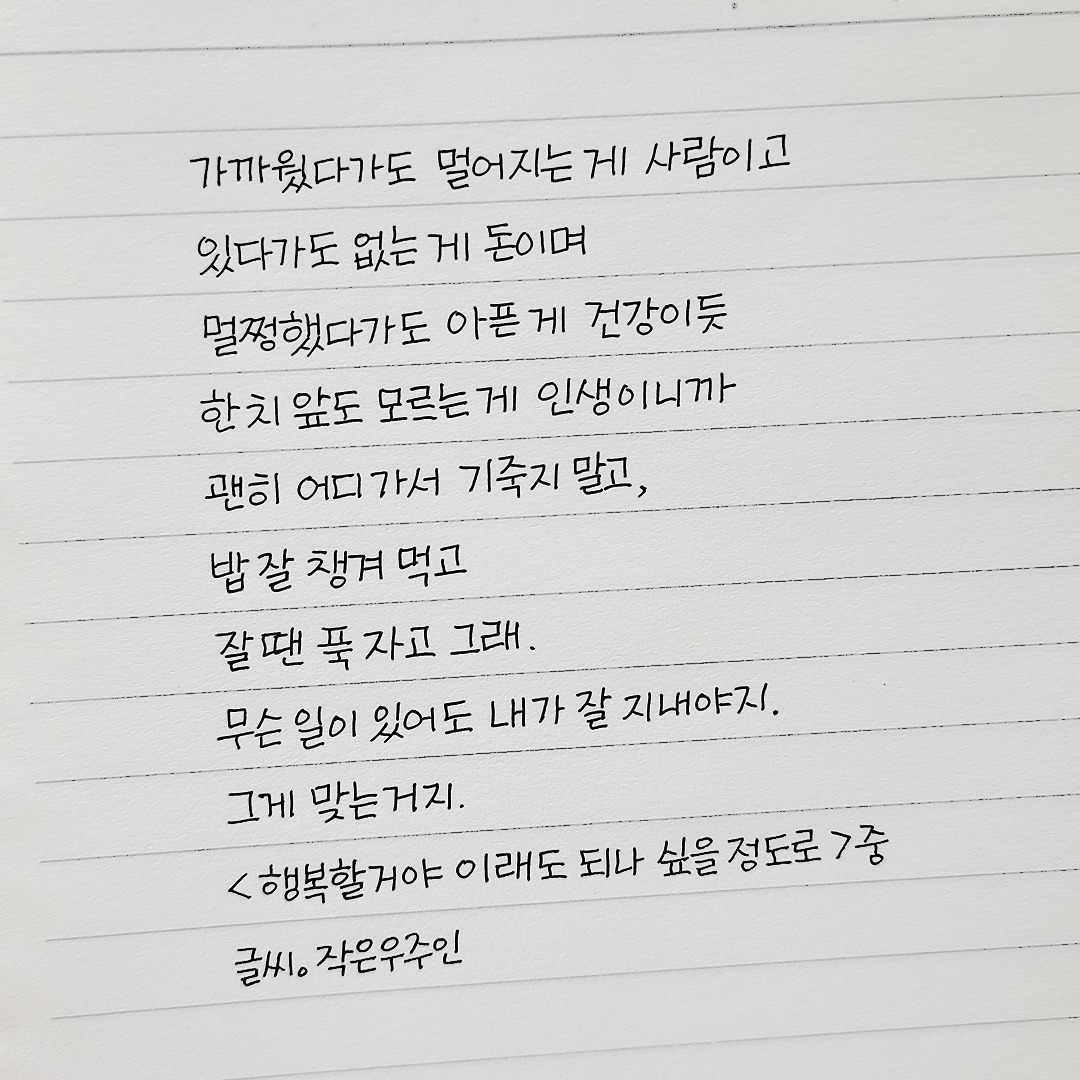 가까웠다가도 멀어지는 게 사람이고
있다가도 없는 게 돈이며
멀쩡했다가도 아픈 게 건강이듯
한 치 앞도 모르는 게 인생이니까
괜히 어디가서 기죽지 말고,
밥 잘 챙겨 먹고
잘 땐 푹 자고 그래.
무슨 일이 있어도 내가 잘 지내야지.
그게 맞는거지.
<행복할거야 이래도 되나 싶을 정도로>중
글씨。작은우주인